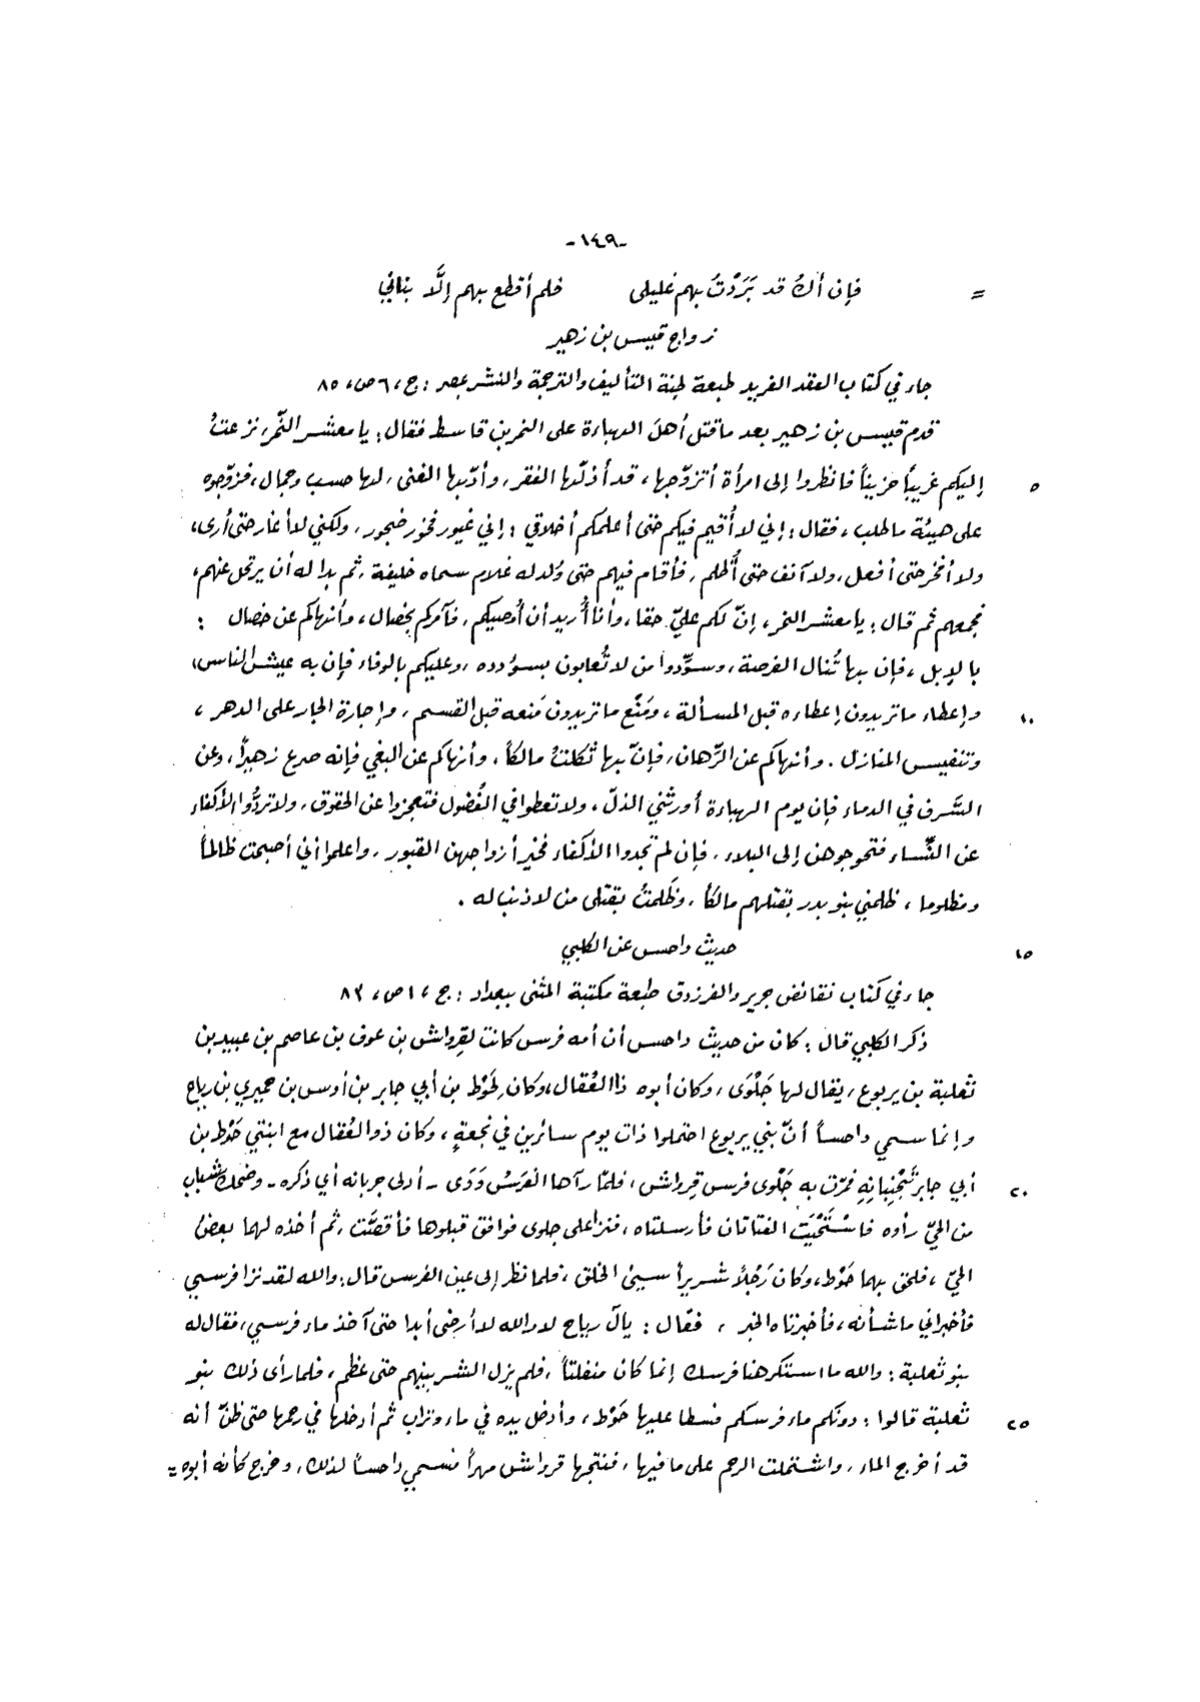 -١٤٩-
= فإن أكُ قد بَرَدْتُ بهم غليلى فلم أقطع بهم إلَّا بناني
زواج قيس بن زهير
جاء في كتاب العقد الفريد طبعة لجنة التأليف والترجمة والنشر بمصر : ج ، ٦ ص ، ٨٥
قدم قيس بن زهير بعد ما قتل أهل الهباءة على النمر بن قاسط فقال : يا معشر النّمر، نزعتُ
٥ إليكم غريباً حزيناً فانظروا إلى امرأة أتزوّجها ، قد أذلّها الفقر ، وأدّبها الغنى ، لها حسب وجمال ، فزوّجوه
على هيئة ما طلب ، فقال : إني لا أُقيم فيكم حتى أعلمكم أخلاقي : إني غيور فخور ضجور ، ولكني لا أغار حتى أرى ،
ولا أفخر حتى أفعل ، ولا آنف حتى أُظلم ، فأقام فيهم حتى وُلد له غلام سماه خليفة ، ثم بدا له أن يرتحل عنهم ،
فجمعهم ثم قال : يا معشر النمر ، إنّ لكم عليّ حقا ، وأنا أُريد أن أُوصيكم ، فآمركم بخصال ، وأنهاكم عن خصال :
بالإبل ، فإن بها تُنال الفرصة ، وسوِّدوا من لا تُعابون بسؤدده ، وعليكم بالوفاء فإن به عيش الناس ،
١٠ وإعطاء ما تريدون إعطاءه قبل المسألة ، ومَنْع ما تريدون مَنعه قبل القسم ، وإجارة الجار على الدهر ،
وتنفيس المنازل . وأنهاكم عن الرِّهان ، فإنّ بها ثكلتُ مالكاً ، وأنهاكم عن البغي فإنه صرع زهيراً ، وعن
السَّرف في الدماء فإن يوم الهباءة أورثني الذلّ ، ولا تعطوا في الفُضول فتعجزوا عن الحقوق ، ولا تردُّوا الأكفاء
عن النِّساء فتحوجوهن إلى البلاء ، فإن لم تجدوا الأكفاء فخير أزواجهن القبور ، واعلموا أني أصبحت ظالماً
ومظلوما ، ظلمني بنو بدر بقتلهم مالكاً ، وظَلمتُ بقتلى من لا ذنب له .
١٥ حديث داحس عن الكلبي
جاء في كتاب نقائض جرير والفرزدق طبعة مكتبة المثنى ببغداد : ج ، ١ ص ، ٨٣
ذكر الكلبي قال : كان من حديث داحس أن أمه فرس كانت لقِرواش بن عوف بن عاصم بن عبيد بن
ثعلبة بن يربوع ، يقال لها جَلْوَى ، وكان أبوه ذا العُقال ، وكان لِحَوْط بن أبي جابر بن أوس بن حميري بن رياح
وإنما سمي داحساً أنّ بني يربوع احتملوا ذات يوم سائرين في نجعةٍ ، وكان ذو العُقال مع ابنتي حَوْط بن
٢٠ أبي جابر تَجْنِبانِهِ فمرّت به جَلْوى فرس قرواش ، فلمّا رآها الفَرَسُ وَدَى - أدلى جربانه أي ذكره - وضحك شباب
من الحيّ رأوه فاسْتَحْيَت الفتاتان فأرسلتاه ، فنزا على جلوى فوافق قبلوها فأقصَّت ، ثم أخذه لهما بعضُ
الحيّ ، فلحق بهما حَوْط ، وكان رَجُلاً شريراً سيئ الخلق ، فلما نظر إلى عين الفرس قال : والله لقد نزا فرسي
فأخبراني ما شأنه ، فأخبرتاه الخبر ، فقال : يالَ رياح لا والله لا أرضى أبدا حتى آخذ ماء فرسي ، فقال له
بنو ثعلبة : والله ما استكرهنا فرسك إنما كان منفلتاً ، فلم يزل الشر بينهم حتى عظم ، فلما رأى ذلك بنو
٢٥ ثعلبة قالوا : دونكم ماء فرسكم فسطا عليها حَوْط ، وأدخل يده في ماء وتراب ثم أدخلها في رحمها حتى ظنّ أنه
قد أخرج الماء ، واشتملت الرحم على ما فيها ، فنتجها قرواش مهراً فسمي داحساً لذلك ، وخرج كأنه أبوه =